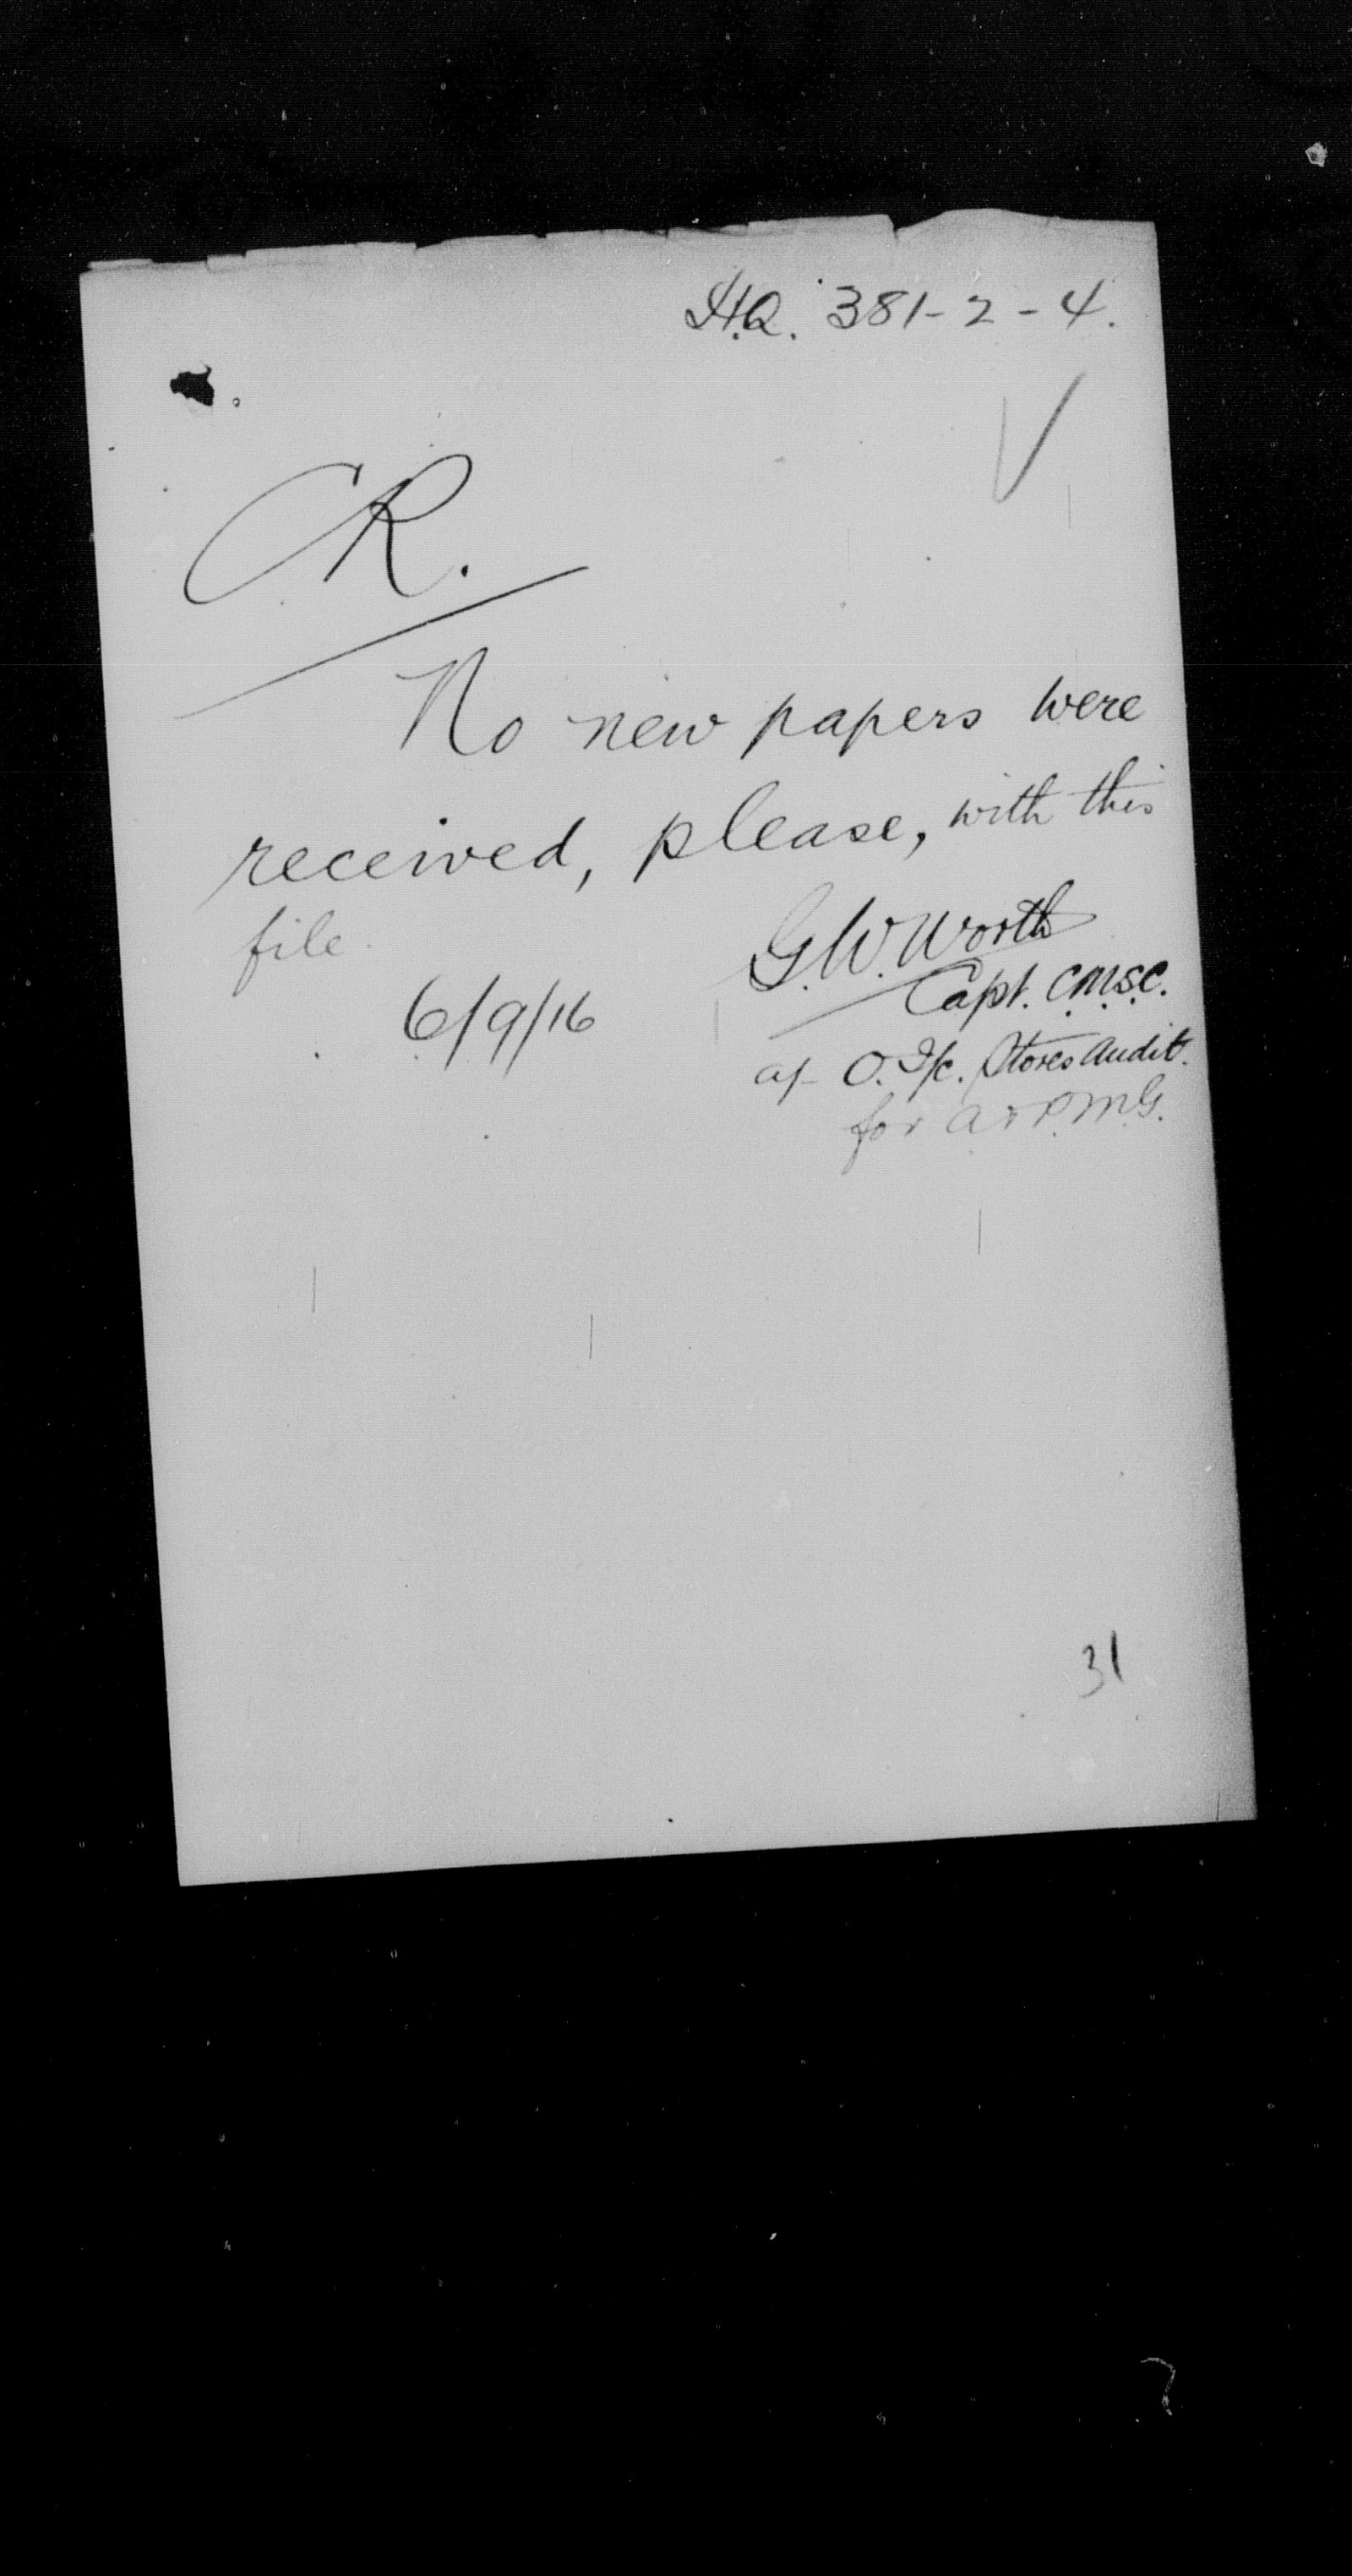 H.Q. 381-2-4.
CR.
No new papers were
received, please, with this
file.
G.W. Worth
Capt. C.M.S.C.
6/9/16
a/- O. I/c. Stores Audit.
for A & P.M.G.
31